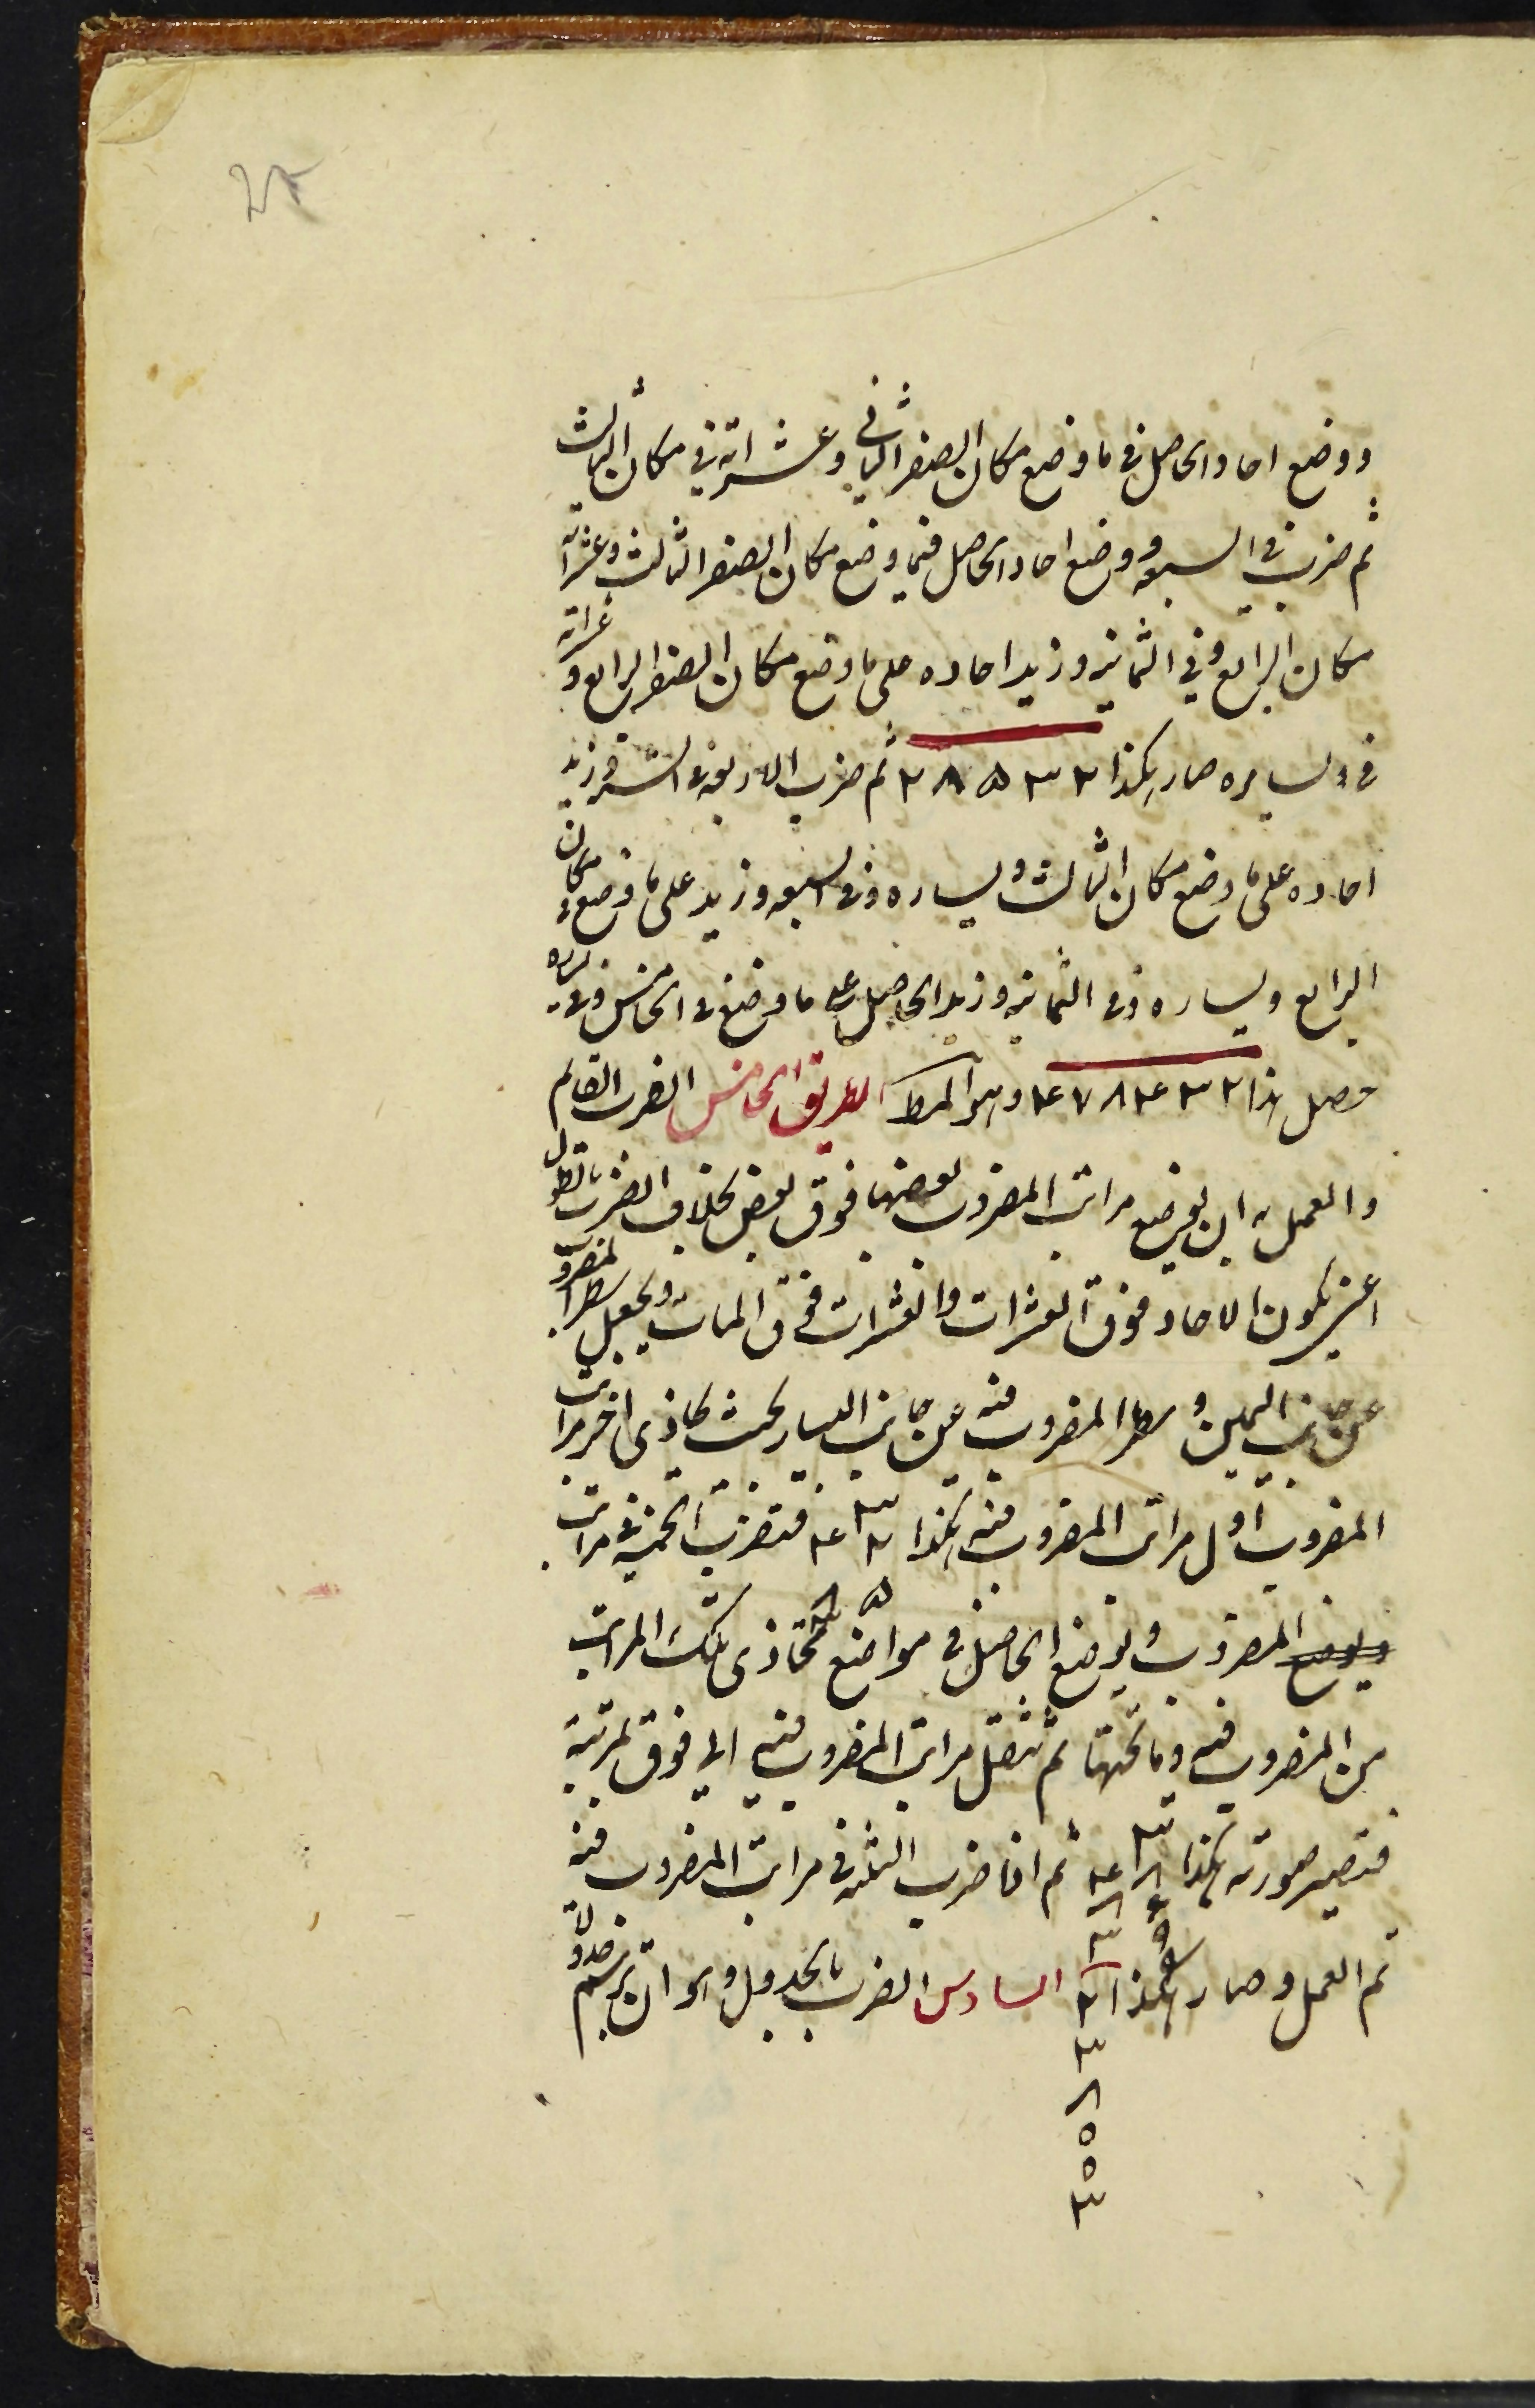 ووضع احاد الحاصل فی ما وضع مکان الصفر الثانی وعشراته فی مکان الثالث
ثم ضرب فی السبعه ووضع احاد الحاصل فیما وضع مکان الصفر الثالث وعشراته
مکان الرابع وفی الثمانیه وزید احاده علی ما وضع مکان الصفر الرابع وعشراته
فی یساره صار هکذا ۲ ۸ ۵ ۳ ۲ ثم ضرب الاربعه فی الستة وزید
احاده علی ما وضع مکان الثالث ویساره وفی السبعه وزید علی ما وضع مکان
الرابع ویساره وفی الثمانیه وزید الحاصل علی ما وضع فی الخامس وفی یساره
حصل هذا ۴ ۷ ۸ ۴ ۳ ۲ وهو المط الطریق الخامس الضرب القائم
والعمل به ان یوضع مراتب المضروب بعضها فوق بعض بخلاف الضرب بالطول
اعنی یکون الاحاد فوق العشرات والعشرات فوق المات ویجعل سطر المضروب
عن جانب الیمین وسطر المضروب فیه عن جانب الیسار بحیث یحاذی اخر مراتب
المضروب اول مراتب المضروب فیه هکذا فتضرب الخمسه فی مراتب
المضروب ویوضع الحاصل فی مواضع تحاذی تلک المراتب
من المضروب فیه وما تحتها ثم تنتقل مراتب المضروب فیه الی فوق بمرتبة
فتصیر صورته هکذا ثم اذا ضرب الثلثه فی مراتب المضروب فیه
تم العمل وصار هکذا السادس الضرب بالجدول وهو ان یرسم جدولا